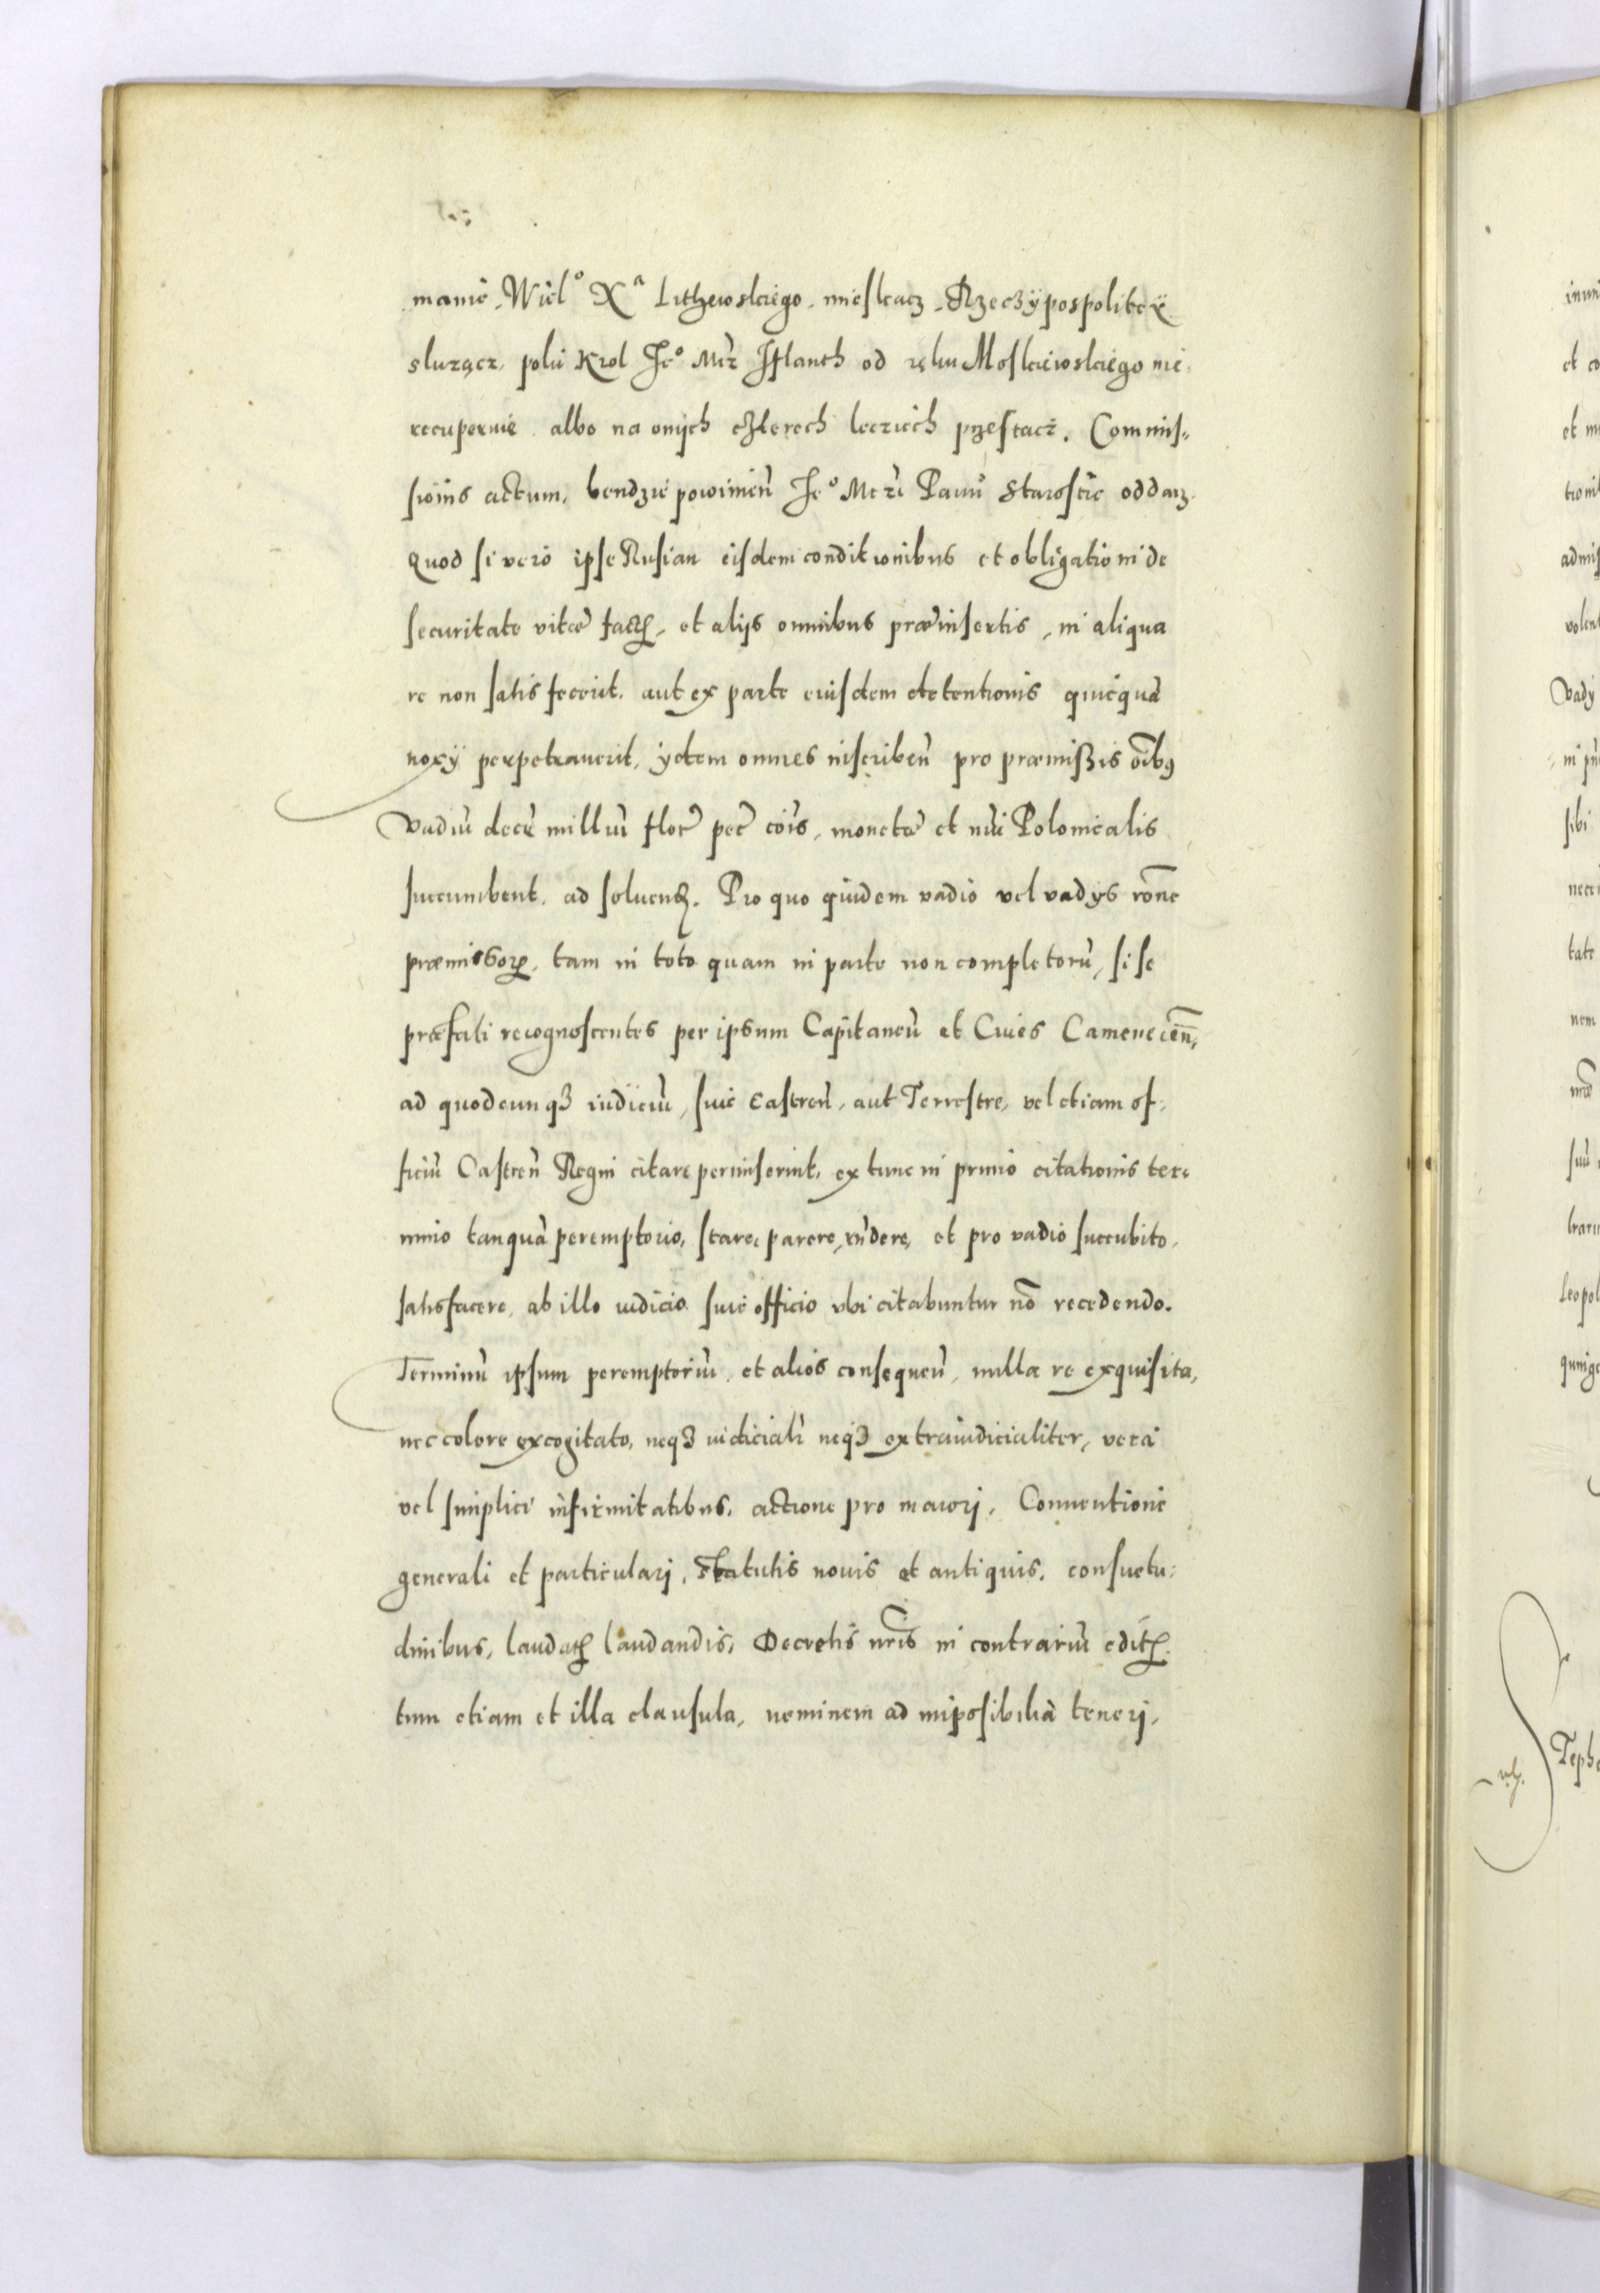 manie, Wiel° Xᵃ Lithewskiego, mieskacz, Rzeczÿpospoliteÿ
sluzącz, poki Krol Je° Mcz Iflanth od ręku Moskiewskiego nie
recuperuie, albo na onÿch czterech leciech przestacz. Commis-
sionis actum, bendzie powinien Je° Mczi Panu Staroscie oddacz.
Quod si vero ipse Rusian eisdem conditionibus et obligationi de
securitate vitæ factæ, et alijs omnibus præinsertis, in aliqua
re non satisfecerit, aut ex parte eiusdem detentionis quicquā
noxÿ perpetrauerit, ÿdem omnes inscribeñ pro præmissis oībꝰ
vadiū decē milliū flor pec cōis, monetæ et nūi Polonicalis
succumbent, ad soluend. Pro quo quidem vadio vel vadys rōne
præmissoꝝ, tam in toto quam in parte non completorū, si se
præfati recognoscentes per ipsum Capitaneū et Ciues Camenecēn,
ad quodcunqꝫ iudiciū, siue Castreñ, aut Terrestre, vel etiam of-
ficiū Castreñ Regni citare permiserint, ex tunc in primo citationis ter-
mino tanquā peremptorio, stare, parere, rñdere, et pro vadio succubito,
satisfacere, ab illo iudicio siue officio vbi citabuntur nō recedendo.
Terminū ipsum peremptoriū, et alios consequeñ, nulla re exquisita,
nec colore excogitato, neqꝫ iudiciali neqꝫ extraiudicialiter, vera
vel simplici infirmitatibus, actione pro maiori, Conuentione
generali et particulari, statutis nouis et antiquis, consuetu-
dinibus, laudatꝭ laudandis, Decretis nr̄is in contrariū editꝭ
tum etiam et illa clausula, neminem ad impossibilia teneri,